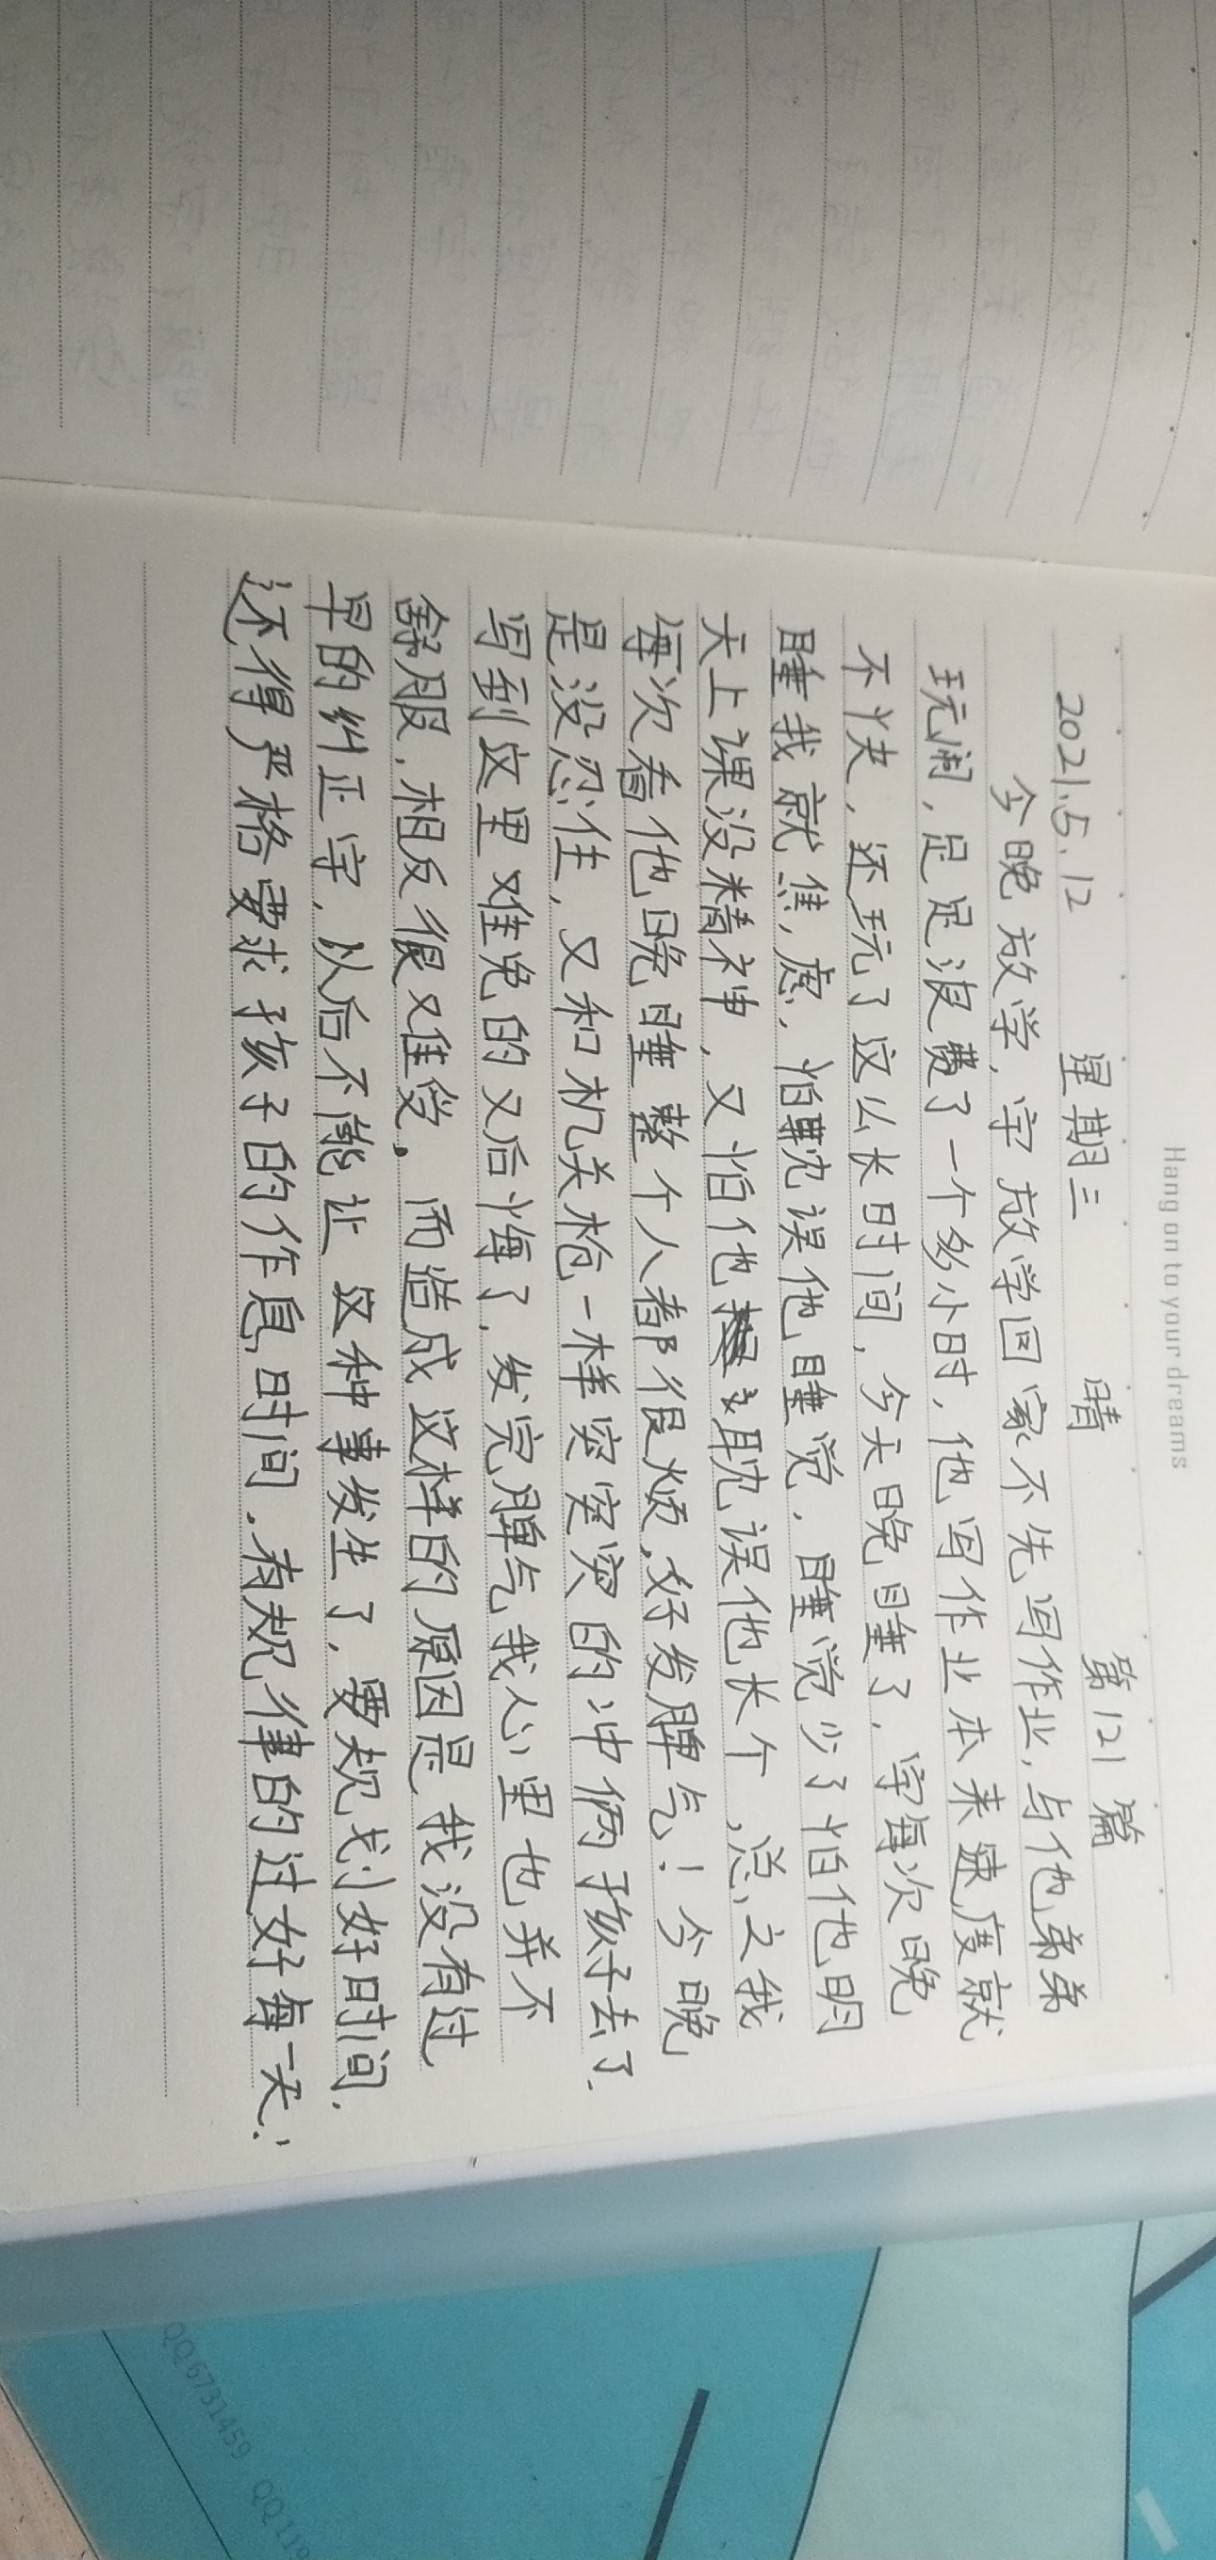 Hang on to your dreams
2021.5.12 星期三 晴 第121篇
今晚放学,宇放学回家不先写作业,与他弟弟
玩闹,足足浪费了一个多小时,他写作业本来速度就
不快,还玩了这么长时间,今天晚睡了,宇每次晚
睡我就焦虑,怕耽误他睡觉,睡觉少了怕他明
天上课没精神,又怕他耽误他长个,总之我
每次看他晚睡整个人都很烦,好发脾气!今晚
是没忍住,又和机关枪一样突突突的冲俩孩子去了.
写到这里难免的又后悔了,发完脾气我心里也并不
舒服,相反很难受。而造成这样的原因是我没有过
早的纠正宇,从后不能让这种事发生了,要规划好时间.
还得严格要求孩子的作息时间.有规律的过好每一天!
QQ6731459 QQ119